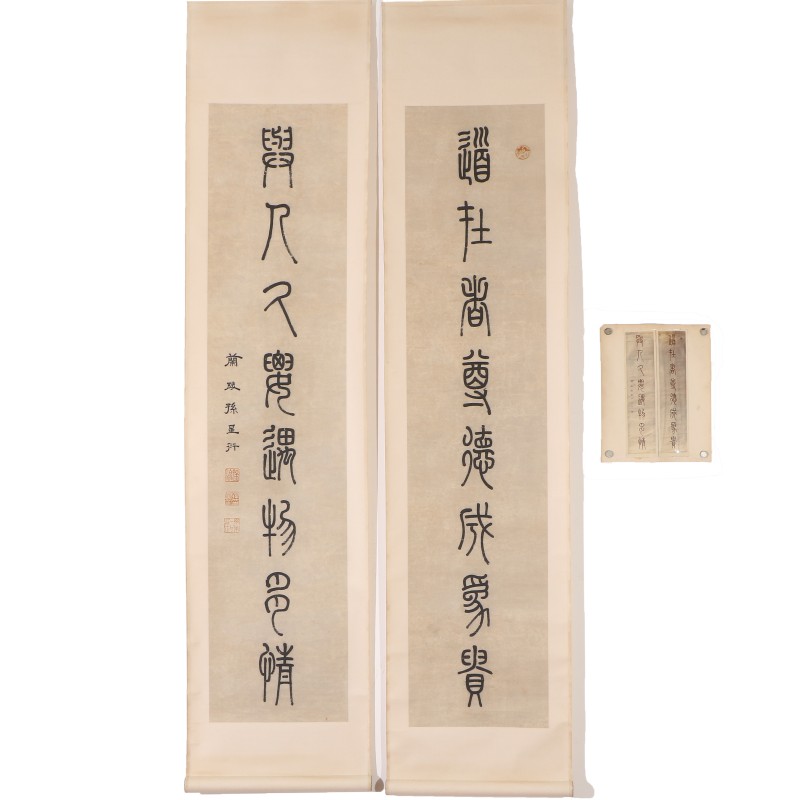 道在者尊德成爲貴
與人久要遇物多情
蘭陵孫星衍